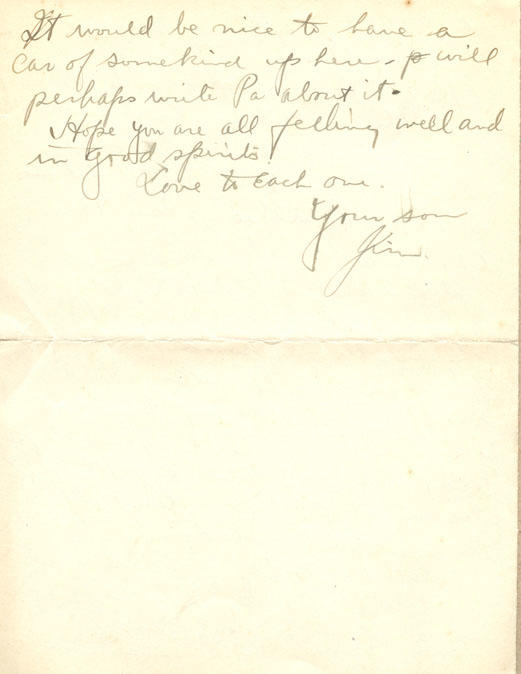 It would be nice to have a
car of somekind up here - I will
perhaps write Pa about it.
Hope you are all felling well and
in good spirits.
Love to Each one.
Your son
Jim.